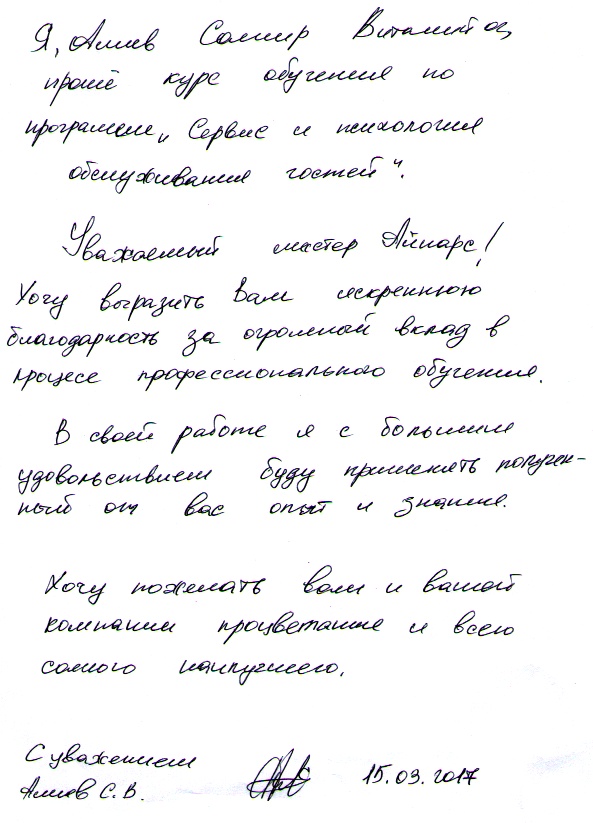 Я, Алиев Самир Виталийович
прошёл курс обучения по
программе „Сервис и психология
обслуживания гостей“.
Уважаемый мастер Айнарс!
Хочу выразить Вам искреннюю
благодарность за огромный вклад в
процесе профессионального обучения.
В своей работе я с большим
удовольствием буду применять получен-
ный от вас опыт и знания.
Хочу пожелать вам и вашей
компании процветание и всего
самого наилучшего.
С уважением
Алиев С. В. 15.03.2017